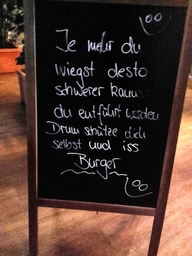 Je mehr du
wiegst desto
schwerer kannst
du entführt werden
Drum schütze dich
selbst und iss
Burger